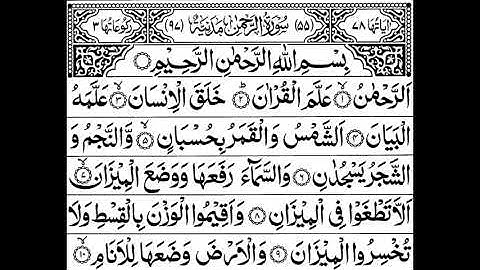 اٰيَاتُهَا ٧٨ (٥٥) سُوْرَةُ الرَّحْمٰنِ مَدَنِيَّةٌ (٩٧) رُكُوْعَاتُهَا ٣
بِسْمِ اللّٰهِ الرَّحْمٰنِ الرَّحِيْمِ
اَلرَّحْمٰنُ ۙ‏﴿۱﴾ عَلَّمَ الْقُرْاٰنَ ؕ‏﴿۲﴾ خَلَقَ الْاِنْسَانَ ۙ‏﴿۳﴾ عَلَّمَهُ
الْبَيَانَ ‏﴿۴﴾ اَلشَّمْسُ وَالْقَمَرُ بِحُسْبَانٍ ‏﴿۵﴾ وَّالنَّجْمُ وَ
الشَّجَرُ يَسْجُدٰنِ ‏﴿۶﴾ وَالسَّمَآءَ رَفَعَهَا وَوَضَعَ الْمِيْزَانَ ۙ‏﴿۷﴾
اَلَّا تَطْغَوْا فِى الْمِيْزَانِ ‏﴿۸﴾ وَاَقِيْمُوا الْوَزْنَ بِالْقِسْطِ وَلَا
تُخْسِرُوا الْمِيْزَانَ ‏﴿۹﴾ وَالْاَرْضَ وَضَعَهَا لِلْاَنَامِ ۙ‏﴿۱۰﴾